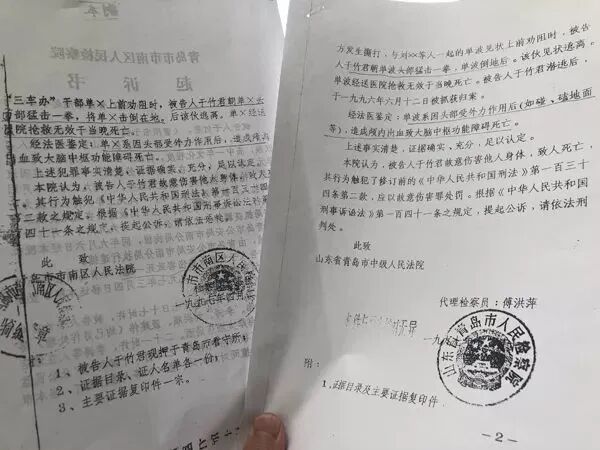 副本
青岛市市南区人民检察院
起诉书
"三车办"干部单×上前劝阻时，被告人于竹君朝单×头
部猛击一拳，将单×击倒在地。后该伙逃离。单×经送
医院抢救无效于当晚死亡。
经法医鉴定：单×系因头部受外力作用后，造成颅内
出血致大脑中枢功能障碍死亡。
上述犯罪事实清楚，证据确实、充分，足以认定。
本院认为，被告人于竹君故意伤害他人身体，致人死
亡，其行为触犯《中华人民共和国刑法》第一百三十四
条二款之规定，根据《中华人民共和国刑事诉讼法》第
一百四十一条之规定，提起公诉，请依法惩处。
此致
青岛市市南区人民法院
一九九七年四月
附：
1、被告人于竹君现押于青岛市看守所；
2、证据目录、证人名单各一份；
3、主要证据复印件一宗。
方发生撕打，与刘××等人一起的单波见状上前劝阻时，被告
人于竹君朝单波头部猛击一拳，单波倒地后。该伙见状逃离。
单波经送医院抢救无效于当晚死亡。被告人于竹君潜逃后，
于一九九六年六月十二日被抓获归案。
经法医鉴定：单波系因头部受外力作用后（如碰、磕地面
等），造成颅内出血致大脑中枢功能障碍死亡。
上述事实清楚，证据确实、充分，足以认定。
本院认为，被告人于竹君故意伤害他人身体，致人死亡，
其行为触犯了修订前的《中华人民共和国刑法》第一百三十
四条第二款，应以故意伤害罪处罚。根据《中华人民共和国
刑事诉讼法》第一百四十一条之规定，提起公诉，请依法刑
判处。
此致
山东省青岛市中级人民法院
代理检察员：傅洪萍
本件与原本核对无异
山东省青岛市人民检察院
附：
1、证据目录及主要证据复印件
-2-